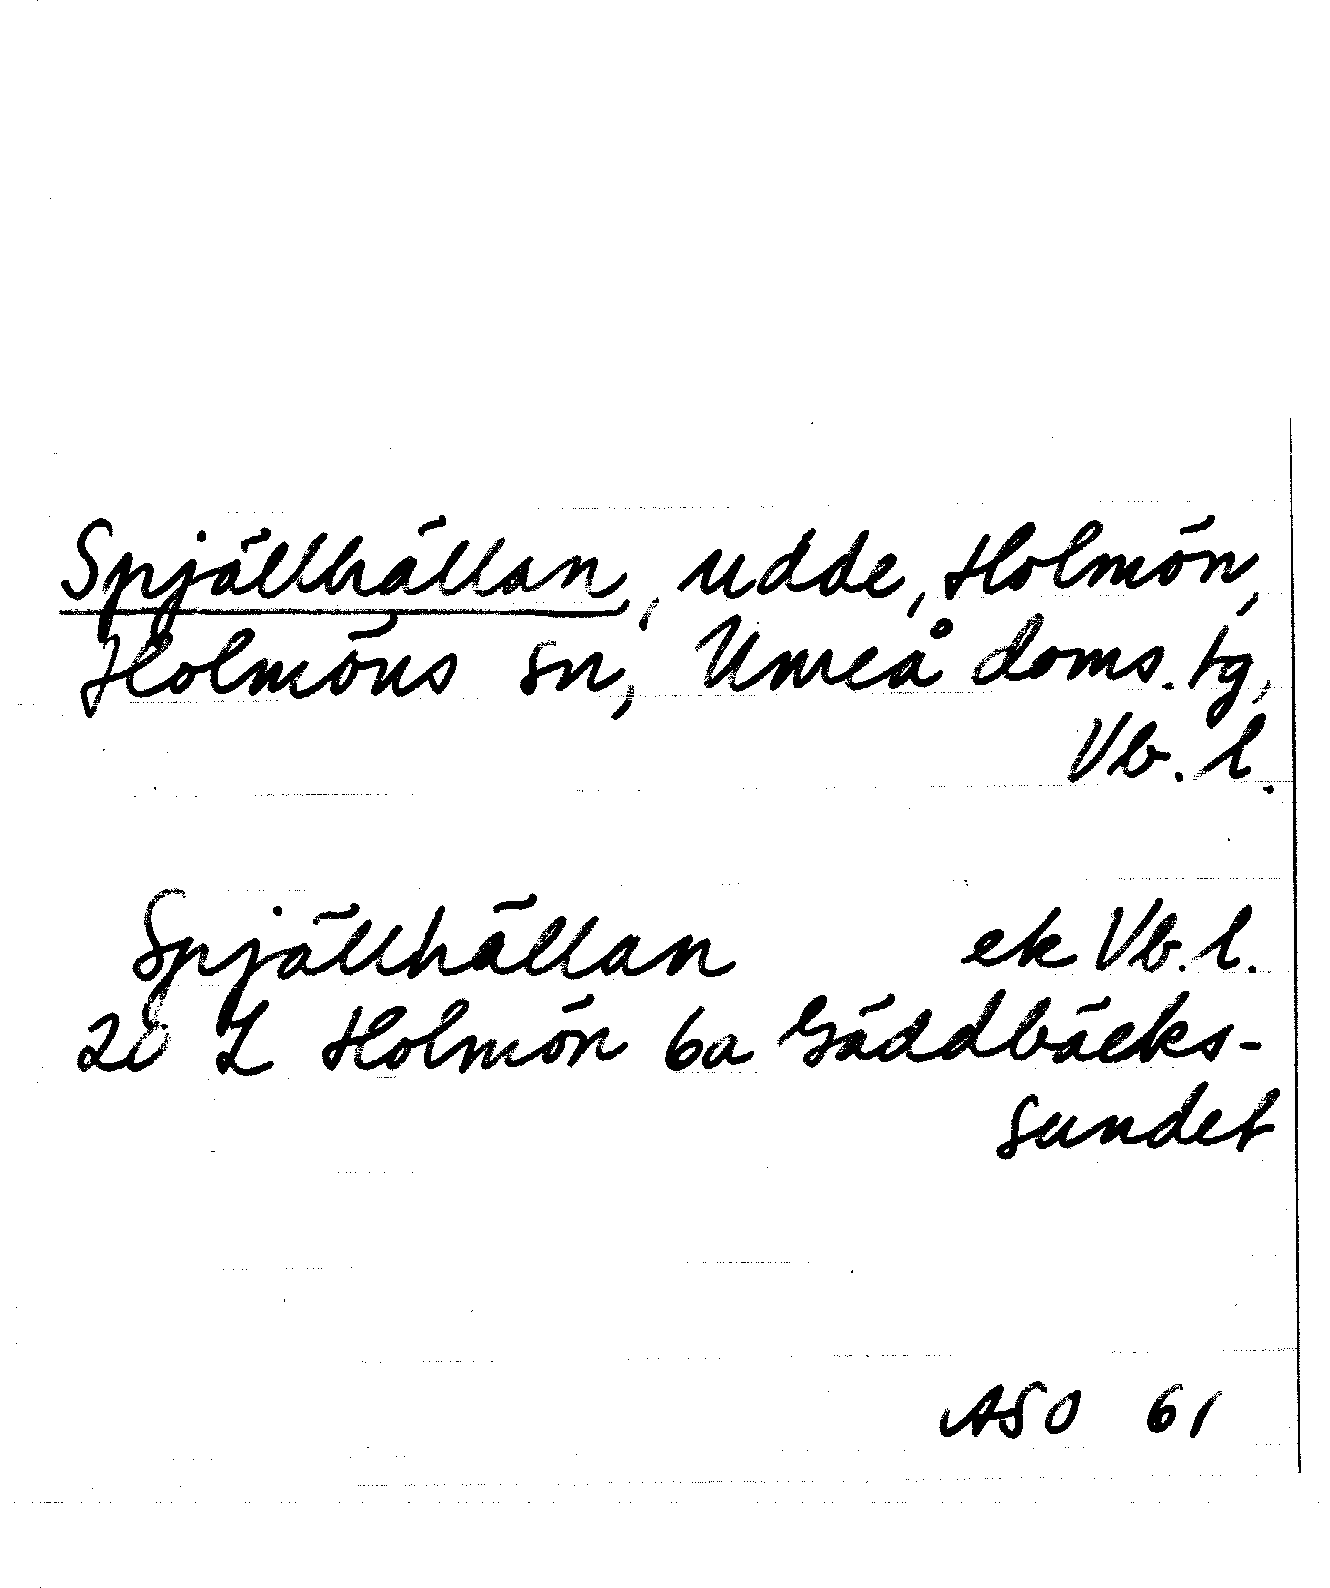 Spjällhällan, udde, Holmön,
Holmöns sn, Umeå doms. tg,
Vb. l.
Spjällhällan ek Vb. l.
20 L Holmön 6a Gäddbäcks-
sundet
ASO 61